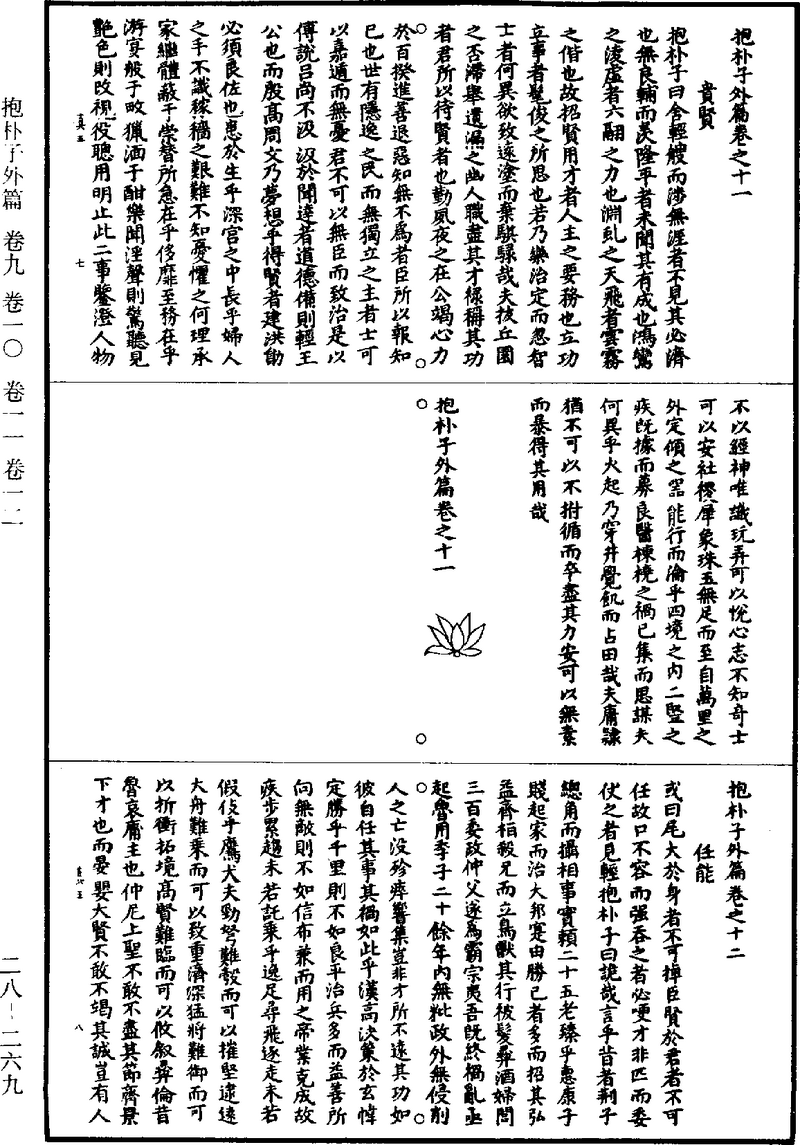 抱朴子外篇卷之十一
貴賢
抱朴子曰舍輕艘而涉無涯者不見其必濟
也無良輔而羨隆平者未聞其有成也鴻鸞
之凌虛者六翮之力也淵虬之天飛者雲霧
之偕也故招賢用才者人主之要務也立功
立事者髦俊之所思也若乃樂治定而忽智
士者何異欲致遠塗而棄騏騄哉夫拔丘園
之否滯舉遺漏之幽人職盡其才祿稱其功
者君所以待賢者也勤夙夜之在公竭心力
於百揆進善退惡知無不為者臣所以報知
已也世有隱逸之民而無獨立之主者士可
以嘉遁而無憂君不可以無臣而致治是以
傅說呂尚不汲汲於聞達者道德備則輕王
公也而殷高周文乃夢想乎得賢者建洪勛
必須良佐也患於生乎深宮之中長乎婦人
之手不識稼穡之艱難不知憂懼之何理承
家繼體蔽乎崇替所急在乎侈靡至務在乎
游宴般于畋獵湎于酣樂聞淫聲則驚聽見
艷色則改視役聰用明止此二事鑒澄人物
七
不以經神唯識玩弄可以悅心志不知奇士
可以安社稷犀象珠玉無足而至自萬里之
外定傾之器能行而淪乎四境之內二豎之
疾既據而募良醫棟橈之禍已集而思謀夫
何異乎火起乃穿井覺飢而占田哉夫庸隸
猶不可以不拊循而卒盡其力安可以無素
而暴得其用哉
抱朴子外篇卷之十一
抱朴子外篇卷之十二
任能
或曰尾大於身者不可掉臣賢於君者不可
任故口不容而強吞之者必哽才非匹而委
仗之者見輕抱朴子曰詭哉言乎昔者荊子
總角而攝相事實賴二十五老臻乎惠康子
賤起家而治大邦寔由勝已者多而招其弘
益齊桓殺兄而立鳥獸其行被髮彝酒婦閭
三百委政仲父遂為霸宗夷吾既終禍亂亟
起魯用季子二十餘年內無粃政外無侵削
人之亡沒殄瘁響集豈非才所不逮其功如
彼自任其事其禍如此乎漢高決策於玄帷
定勝乎千里則不如良平治兵多而益善所
向無敵則不如信布兼而用之帝業克成故
疾步累趨未若託乘乎逸足尋飛逐走未若
假伎乎鷹犬夫勁弩難彀而可以摧堅逮遠
大舟難乘而可以致重濟深猛將難御而可
以折衝拓境高賢難臨而可以攸叙彝倫昔
魯哀庸主也仲尼上聖不敢不盡其節齊景
下才也而晏嬰大賢不敢不竭其誠豈有人
八
抱朴子外篇 卷九 卷一〇 卷一一 卷一二
二八-二六九